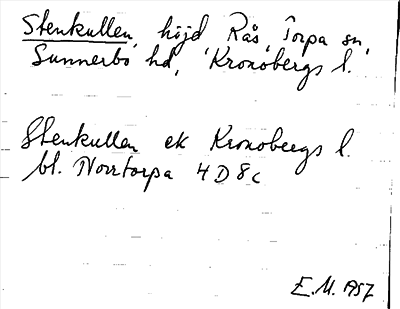 Stenkullen, höjd, Rås, Torpa sn,
Sunnerbo hd, Kronobergs l.
Stenkullen ek Kronobergs l.
bl. Norrtorpa 4 D 8 c
E.M. 1957